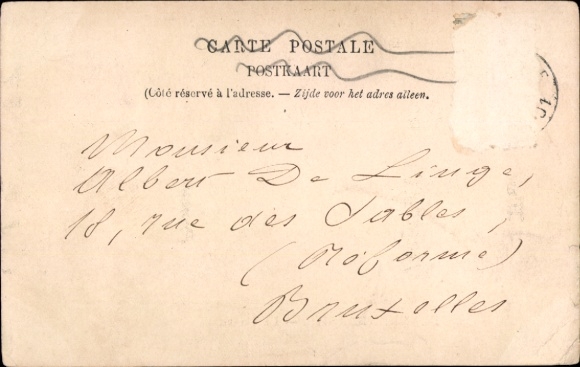 CARTE POSTALE
POSTKAART
(Côté réservé à l'adresse. — Zijde voor het adres alleen.
Monsieur
Albert De Linge,
18, rue des Sables,
(Réforme)
Bruxelles